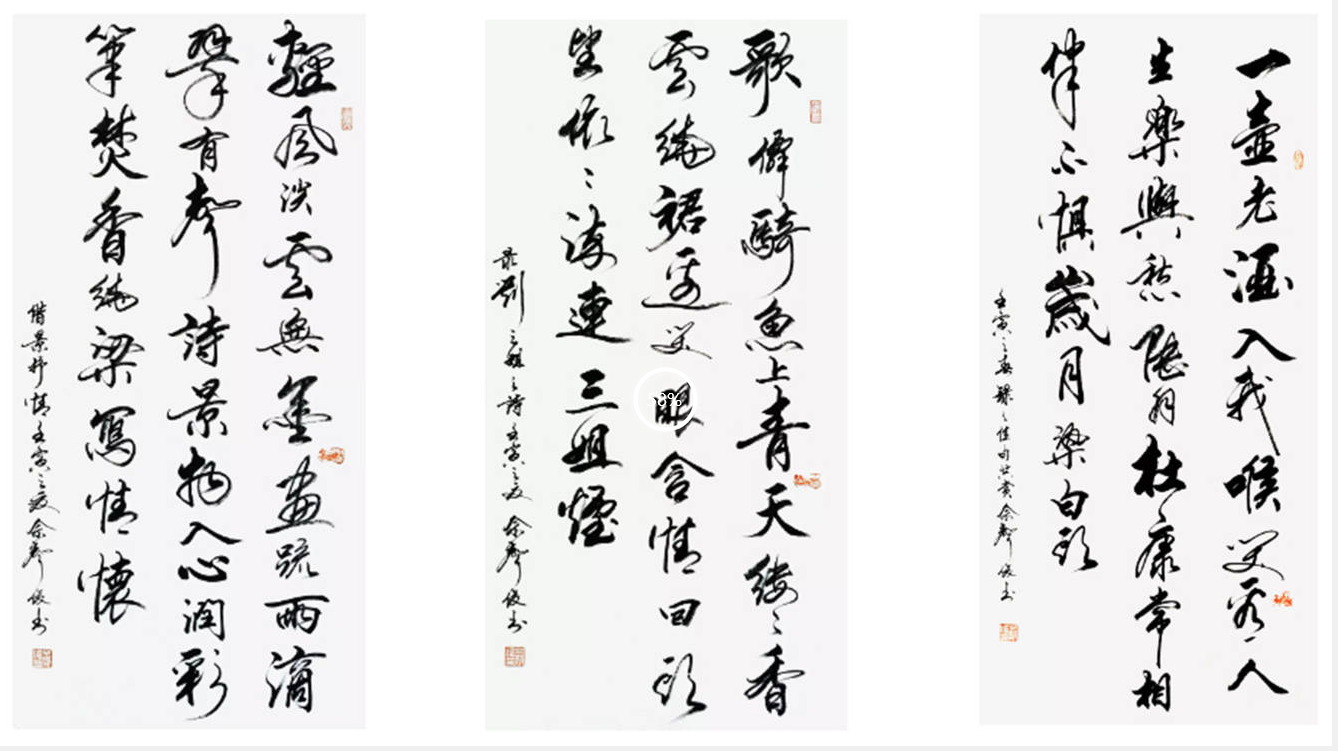 輕風淡雲無墨畫疏雨滴
翠有聲詩景物入心潤彩
筆焚香繞梁寫情懷
借景抒情壬寅之夏余聲俊书
歌僊騎魚上青天縷々香
雲繞裙邊笑眼含情回頭
望依々流連三姐煙
劉三姐之詩壬寅之夏余聲俊书
一壺老酒入我喉笑看人
生樂與愁杜康常相
伴不懼歲月染白頭
壬寅之春佳句共賞余聲俊书
8%